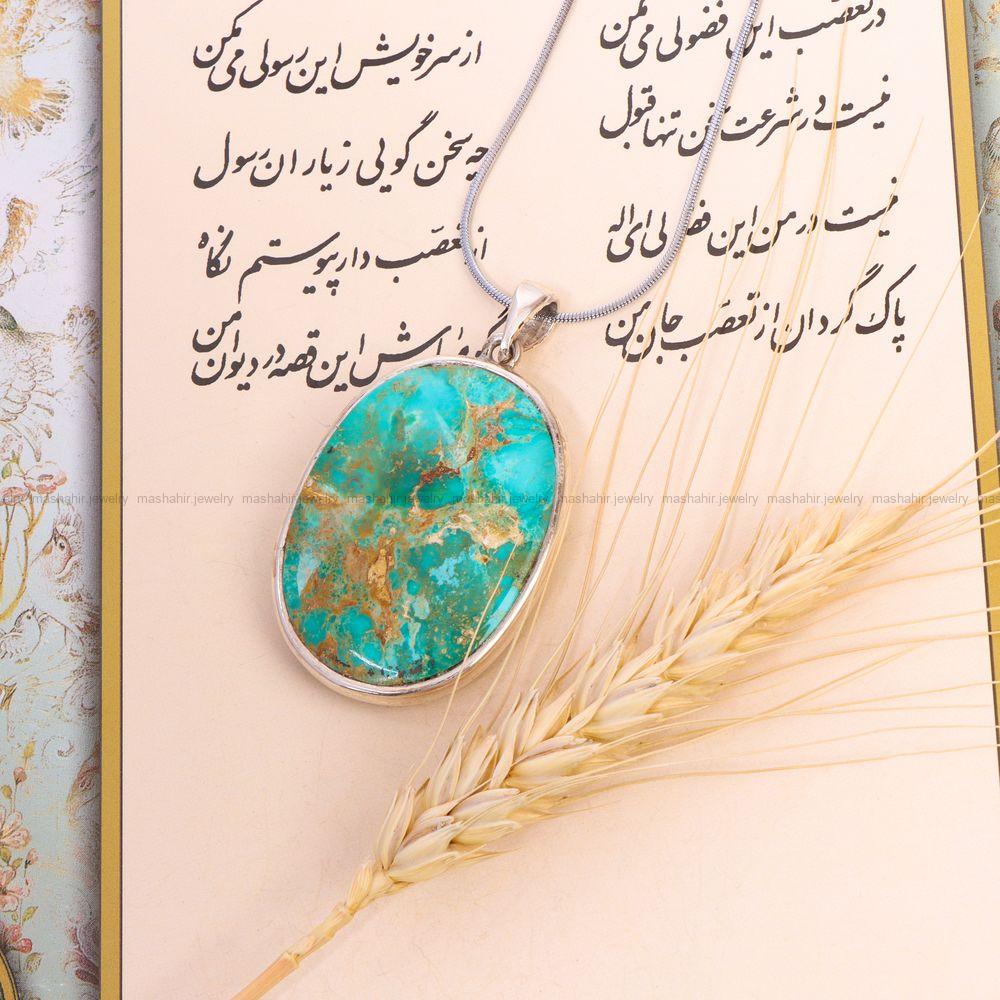 در تعصب این فضولی می‌مکن از سر خویش این رسولی می‌مکن
نیست در شرعت سخن تنها قبول چه سخن گویی ز یاران رسول
نیست در من این فضولی ای اله از تعصب دار پیوستم نگاه
پاک گردان از تعصب جان من گو مباش این قصه در دیوان من
mashahir.jewelry mashahir.jewelry mashahir.jewelry mashahir.jewelry mashahir.jewelry mashahir.jewelry mashahir.jewelry mashahir.jewelry